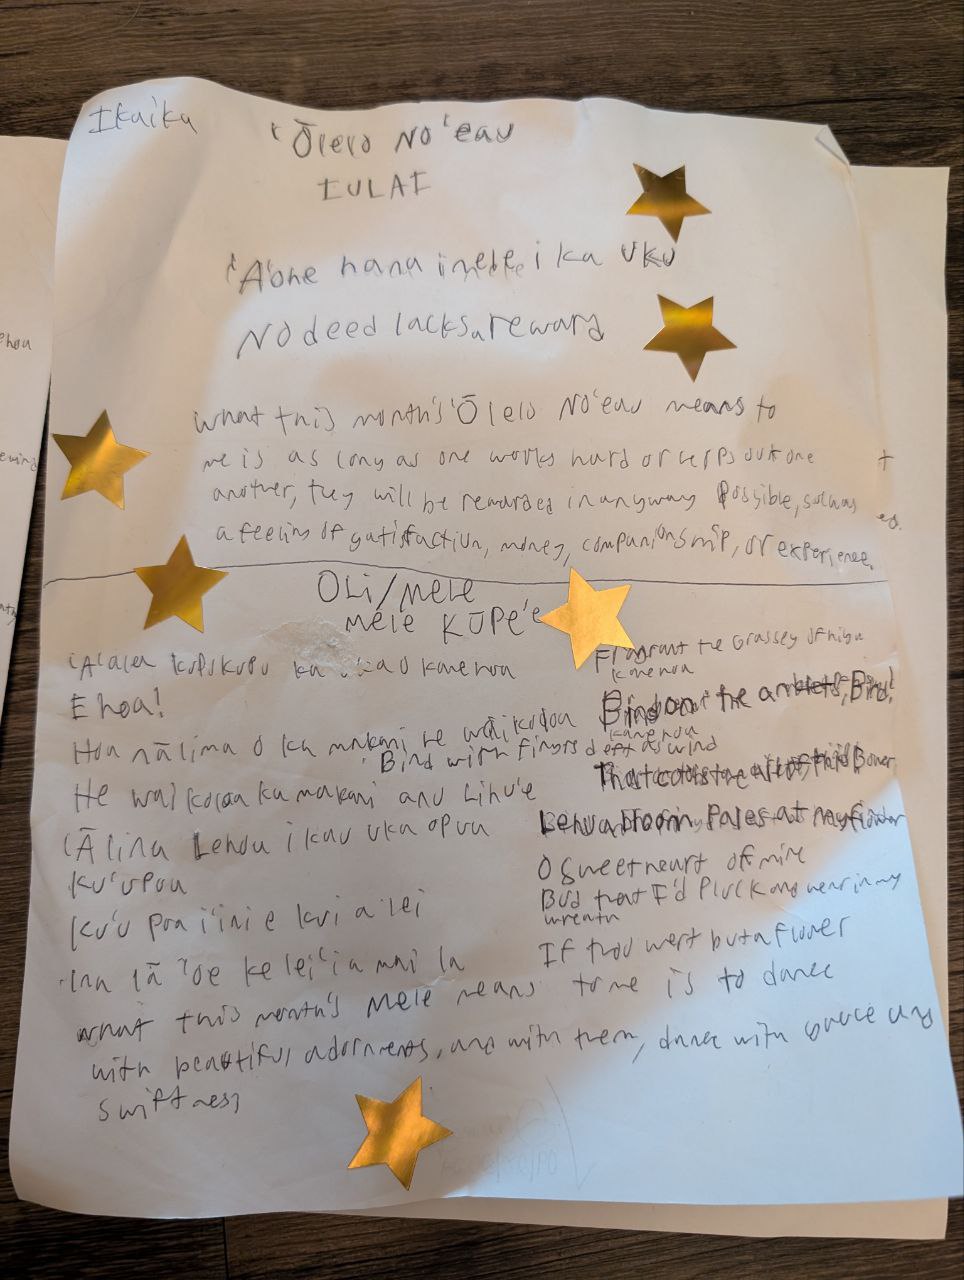 Ikaika
'Ōlelo No'eau
IULAI
'A'ohe hana i nele i ka uku
No deed lacks a reward
What this month's 'Ōlelo No'eau means to
me is as long as one works hard or helps out one
another, they will be rewarded in anyway possible, such as
a feeling of satisfaction, money, companionship, or experience.
OLi/mele
mele KŪPe'e
'A'ala kupukupu ka uka o Kanehoa
E hoa!
Hoa nā lima o ka makani he waikoloa
He waikoloa ka makani anu Lihu'e
'Ālina Lehua i kau uka opua
Ku'u pua
Ku'u pua i'ini e kui a lei
Ina iā 'oe ke lei 'ia mai la
Fragrant the Grasses of high
Kanehoa
Bind on the anklets, Bind!
Bind with fingers deft as wind
That cools the air of this Bower
Lehua bloom Pales at my flower
O sweetheart of mine
Bud that I'd Pluck and wear in my
wreath
If thou wert but a flower
What this month's mele means to me is to dance
with beautiful adornments, and with them, dance with grace and
swiftness